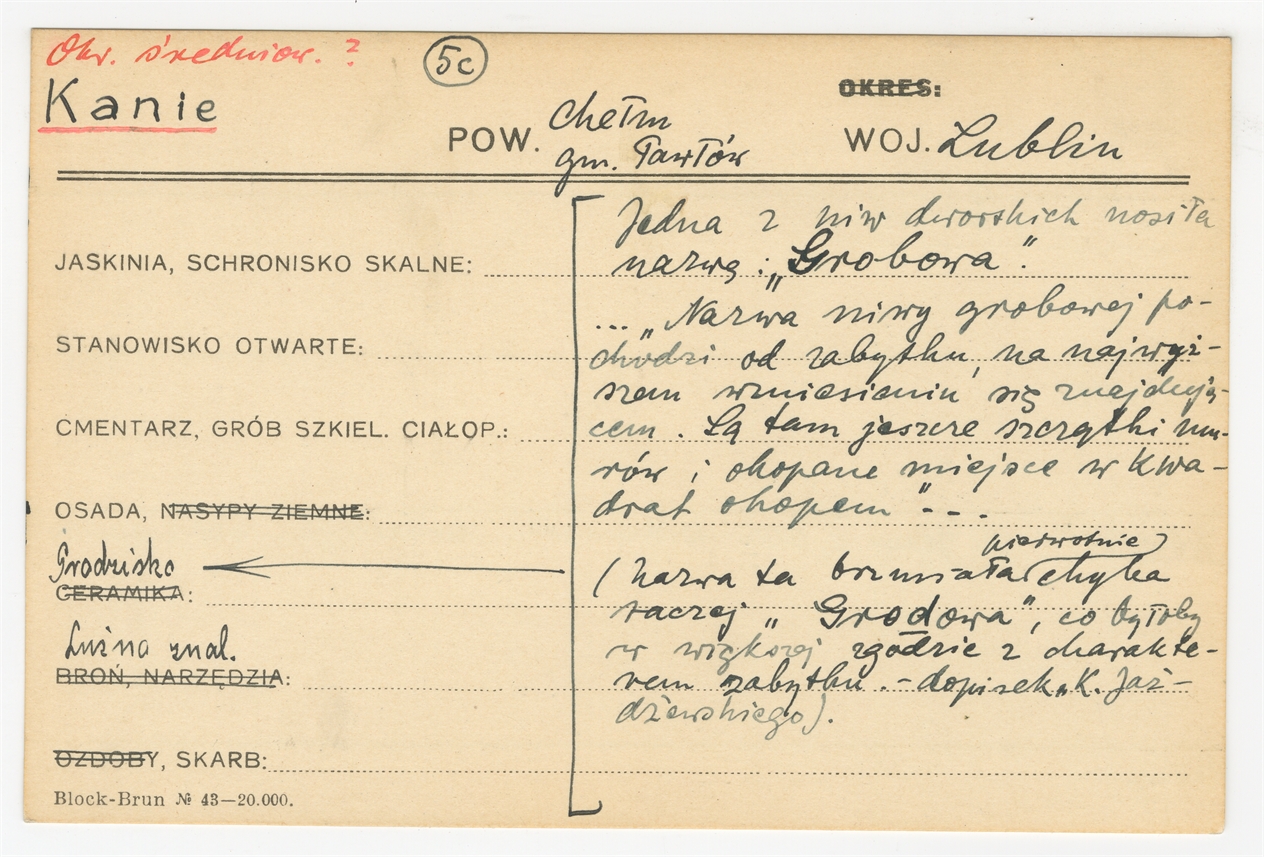 Okr. średniow. ?
5c
Kanie
OKRES:
POW. Chełm
gm. Pawłów
WOJ. Lublin
JASKINIA, SCHRONISKO SKALNE:
STANOWISKO OTWARTE:
CMENTARZ, GRÓB SZKIEL. CIAŁOP.:
OSADA, NASYPY ZIEMNE:
Grodzisko
CERAMIKA:
Luźno znal.
BROŃ, NARZĘDZIA:
OZDOBY, SKARB:
Block-Brun № 43—20.000.
Jedna z niw dworskich nosiła
nazwę: „Grobowa".
... „Nazwa niwy grobowej po-
chodzi od zabytku, na najwyż-
szem wzniesieniu się znajdują-
cem. Są tam jeszcze szczątki mu-
rów i okopane miejsce w kwa-
drat okopem" - - -
(nazwa ta brzmiała pierwotnie chyba
raczej „Grodowa", co byłoby
w większej zgodzie z charakte-
rem zabytku. - dopisek K. Jaż-
dżewskiego).